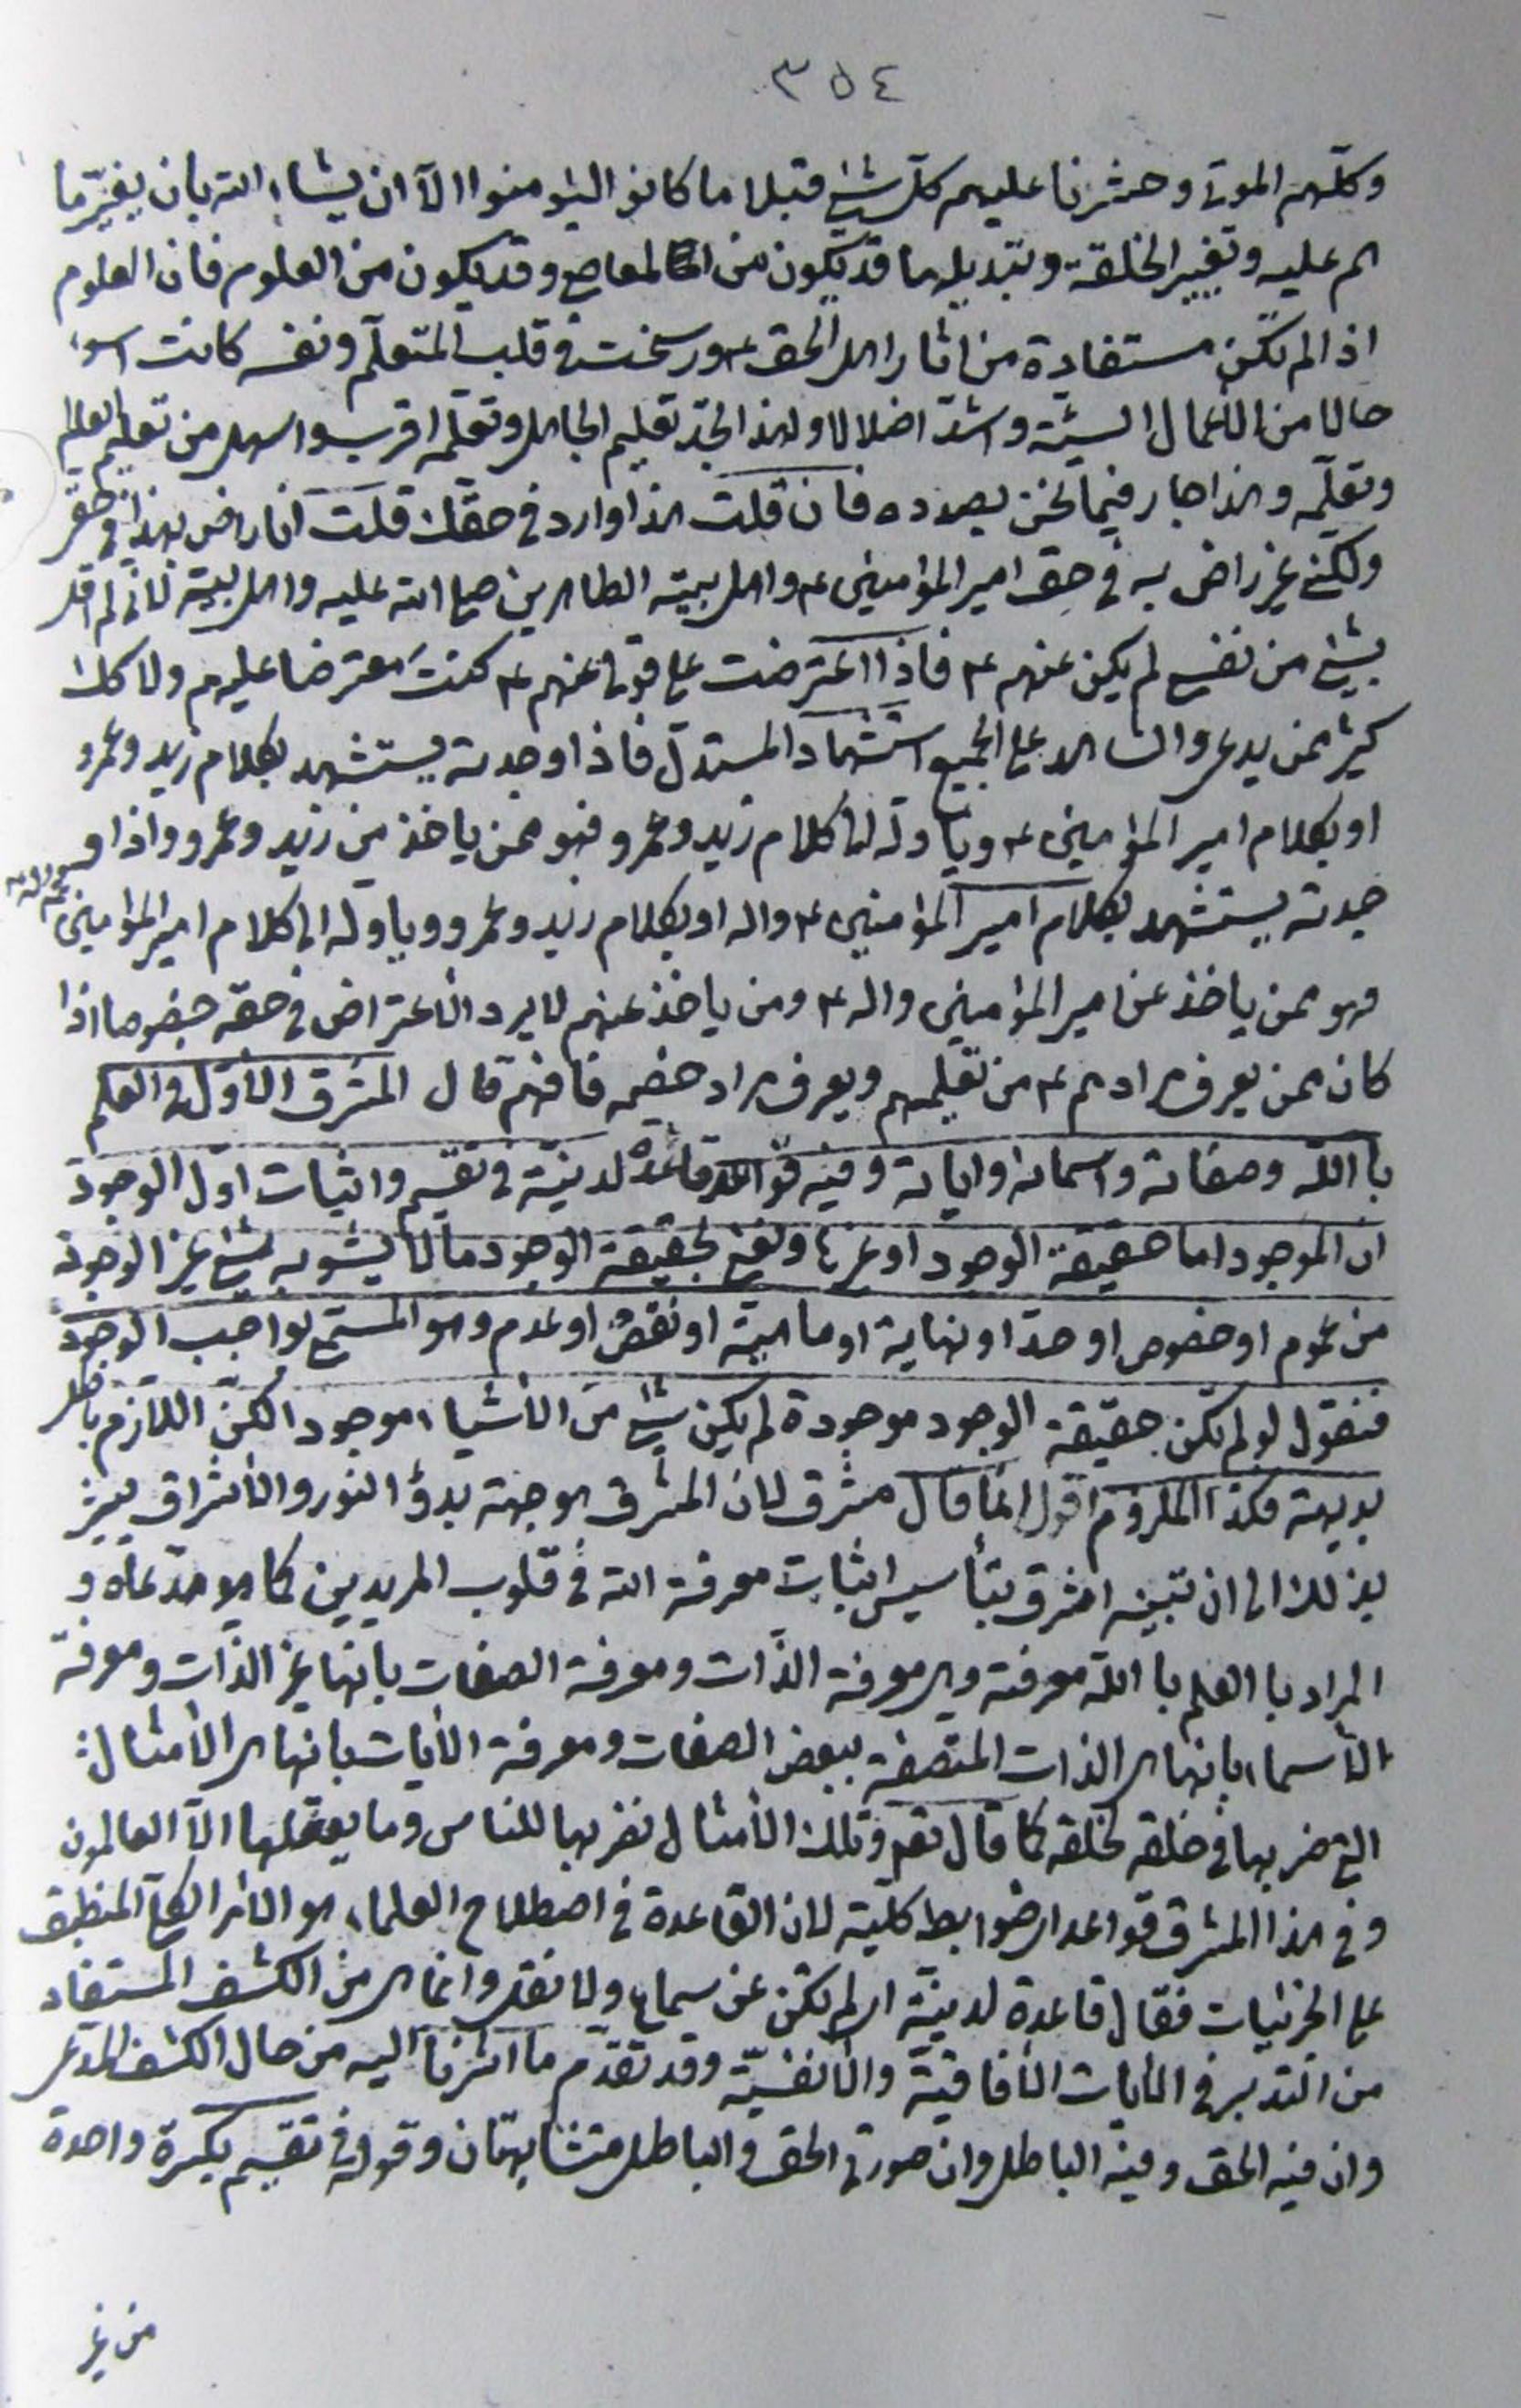 ٣٥٤
وكلّمهم الموتى وحشرنا عليهم كلّ شيئ قبلا ما كانوا ليؤمنوا الّا ان يشاء الله بان يغيّر ما
هم عليه وتغيير الخلقة وتبديلها قد يكون من المعاصي وقد يكون من العلوم فان العلوم
اذا لم تكن مستفادة من اثار اهل الحق ع ورسخت في قلب المتعلّم ونفسه كانت اسوء
حالا من الأعمال السيئة واشدّ اضلالا ولهذا تجد تعليم الجاهل وتعلّمه اقرب واسهل من تعليم العالم
وتعلّمه وهذا جار فيما نحن بصدده فان قلت هذا وارد في حقك قلت انا راض بهذا في حقي
ولكني غير راض به في حق امير المؤمنين ع واهل بيته الطاهرين صلى الله عليه واهل بيته لأني لم اقل
بشيئ من نفسي لم يكن عنهم ع فاذا اعترضت على قولي عنهم ع كنتَ معترضا عليهم ولا كلك
كثير ممن يدعي والشاهد على الجميع استشهاد المستدل فاذا وجدته يستشهد بكلام زيد وعمرو
او بكلام امير المؤمنين ع ويأوله الى كلام زيد وعمرو فهو ممن ياخذ من زيد وعمرو واذا و
جدته يستشهد بكلام امير المؤمنين ع واله او بكلام زيد وعمرو ويأوله الى كلام امير المؤمنين
فهو ممن ياخذ عن امير المؤمنين واله ع ومن ياخذ عنهم لا يرد الأعتراض في حقه خصوصا اذا
كان ممن يعرف مرادهم ع من تعليمهم ويعرف مراد خصمه فافهم قال المشرق الأوّل في العلم
باالله وصفاته واسمائه واياته وفيه قواعد قاعدة لدنيّة في تقسيم واثبات اوّل الوجود
ان الموجود اما حقيقة الوجود او غيرها ونعني بحقيقة الوجود ما لا يشوبه شيئ غير الوجود
من عموم او خصوص او حدّ او نهاية او ماهية او نقص او عدم وهو المسمّى بواجب الوجود
فنقول لو لم تكن حقيقة الوجود موجودة لم يكن شيئ من الأشياء موجودا لكنّ اللازم باطل
بديهة فكذا الملزوم اقول انما قال مشرق لان المشرق هو جهة بدؤ النور والأشراق يشير
بذلك الى ان تبيينه اشرق بتأسيس اثبات معرفة الله في قلوب المريدين كما هو مدّعاه و
المراد باالعلم باالله معرفته وهي معرفة الذّات ومعرفة الصفات بانها غير الذّات ومعرفة
الأسماء بانها هي الذات المتصفة ببعض الصفات ومعرفة الأيات بانها هي الأمثال
التي ضربها في خلقه لخلقه كما قال تعم وتلك الأمثال نضربها للناس وما يعقلها الّا العالمون
وفي هذا المشرق قواعد اي ضوابط كلّية لان القاعدة في اصطلاح العلماء هو الأمر الكلّي المنطبق
على الجزئيات فقال قاعدة لدنيّة اي لم تكن عن سماع ولا نقل وانما هي من الكشف المستفاد
من التدبر في الأيات الأفاقيّة والأنفسيّة وقد تقدّم ما اشرنا اليه من حال الكشف المدعى
وان فيه الحق وفيه الباطل وان صورتي الحق والباطل متشابهتان وقوله في تقسيم بكسرة واحدة
من غير